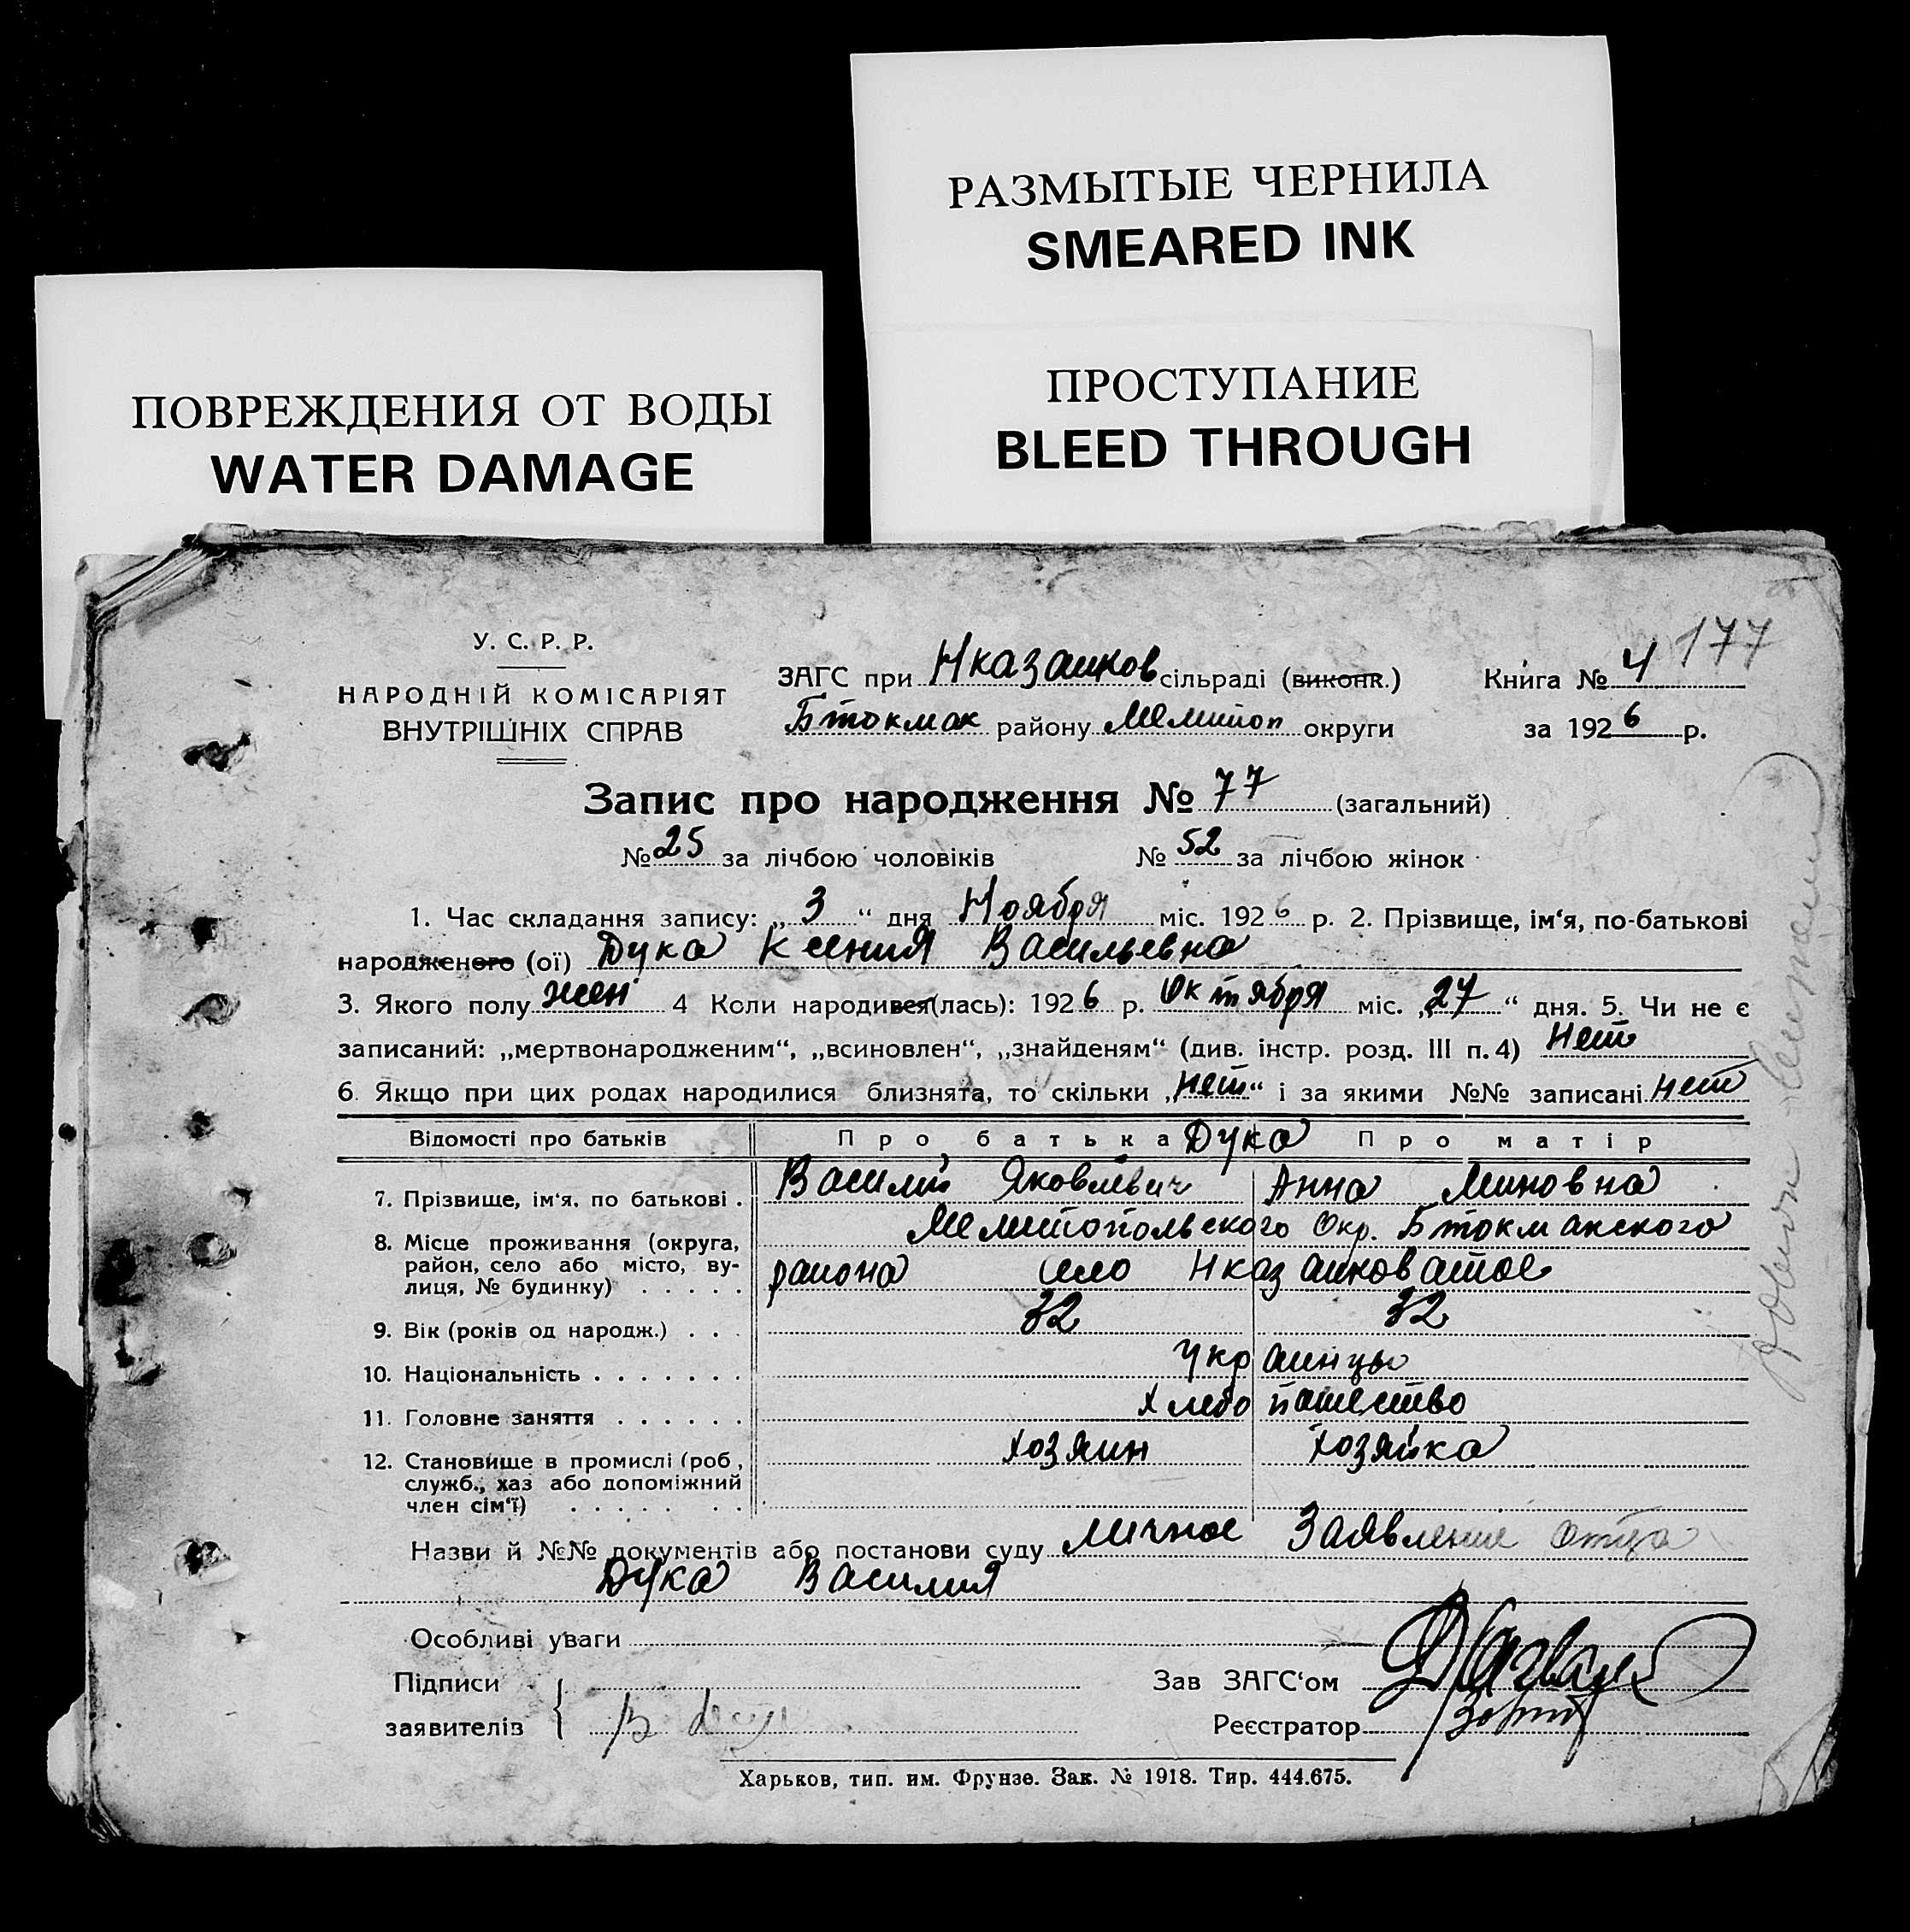 РАЗМЫТЫЕ ЧЕРНИЛА
SMEARED INK
ПРОСТУПАНИЕ
BLEED THROUGH
ПОВРЕЖДЕНИЯ ОТ ВОДЫ
WATER DAMAGE
177
У. С. Р. Р.
НАРОДНІЙ КОМІСАРІЯТ
ВНУТРІШНІХ СПРАВ
ЗАГС при Нказанков сільраді (виконк.)
Бтокмак району Мелитоп округи
Книга № 4
за 1926 р.
Запис про народження № 77 (загальний)
№ 25 за лічбою чоловіків № 52 за лічбою жінок
1. Час складання запису: „3“ дня Ноября міс. 1926 р. 2. Прізвище, ім‘я, по-батькові
народженого (ої) Дука Ксения Васильевна
3. Якого полу жен 4 Коли народився(лась): 1926 р. Октября міс. „27“ дня. 5. Чи не є
записаний: „мертвонародженим“, „всиновлен“, „знайденям“ (див. інстр. розд. III п. 4) Нет
6. Якщо при цих родах народилися близнята, то скільки „нет“ і за якими №№ записані нет
Відомості про батьків Про батька Дука Про матір
7. Прізвище, ім‘я, по батькові . Василий Яковлевич Анна Миновна
8. Місце проживання (округа, Мелитопольского Окр. Бтокмакского
район, село або місто, ву- района село Нказанковатое
лиця, № будинку) . . . . .
9. Вік (років од народж.) . . . 32 32
10. Національність . . . . . . . Украинцы
11. Головне заняття . . . . . . Хлебопашество
12. Становище в промислі (роб, хозяин хозяйка
служб., хаз або допоміжний
член сім‘ї) . . . . . . .
Назви й №№ документів або постанови суду личное Заявление отца
Дука Василия
Особливі уваги
Підписи
заявителів
Зав ЗАГС‘ом
Реєстратор
Харьков, тип. им. Фрунзе. Зак. № 1918. Тир. 444.675.